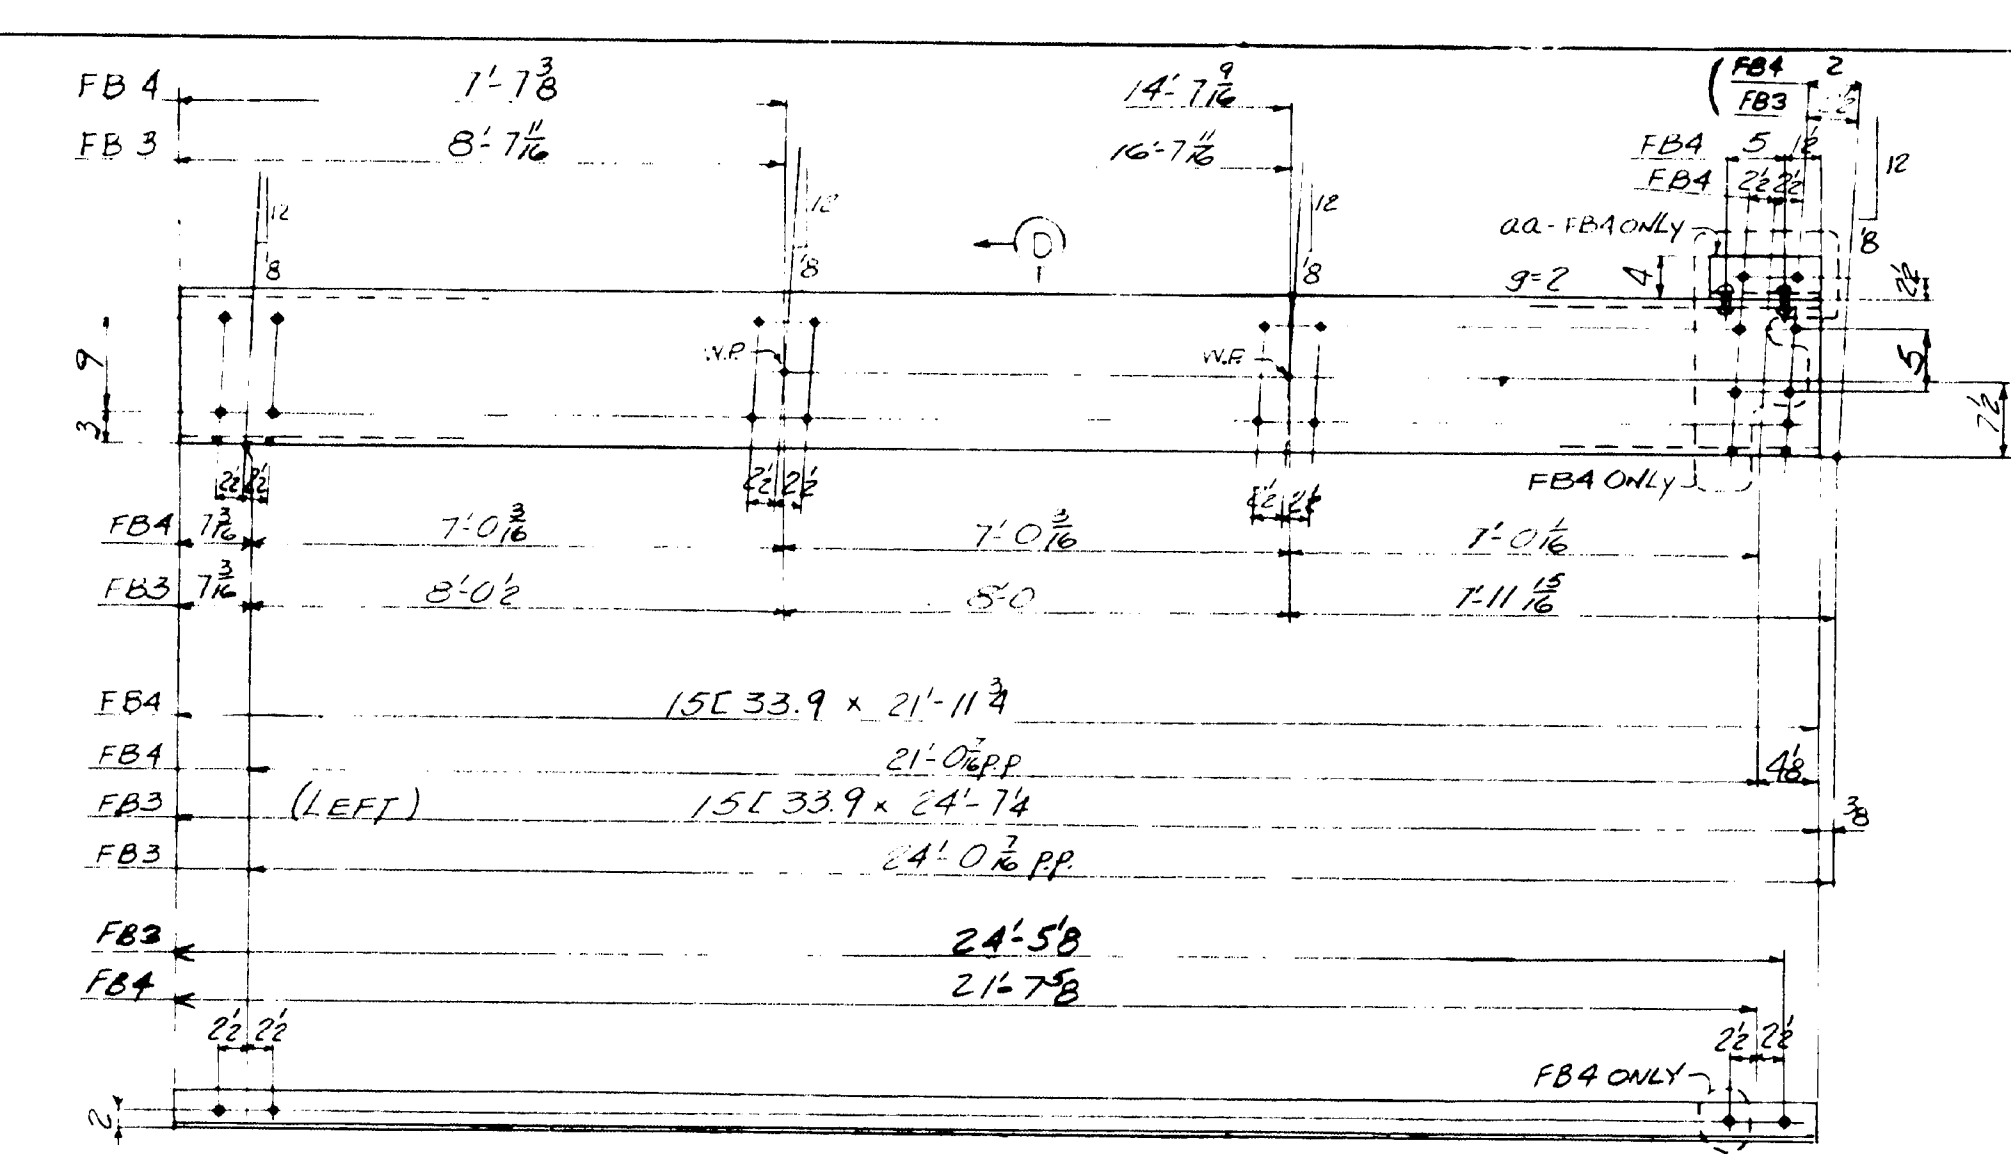 FB 4 7'-7 3/8 14'-7 9/16 FB4 2
FB 3 8'-7 11/16 16'-7 11/16 FB3
FB4 5 1 1/2
FB4 2 1/2 2 1/2 12
12 12 12
aa-FB4 ONLY
D
1/8 1/8 1/8 1/8
g=2 4 2 1/2
W.P. W.P.
9 5
3 7 1/2
FB4 ONLY
2 1/2 2 1/2 2 1/2 2 1/2 2 1/2 2 1/2
FB4 7 3/16 7'-0 3/16 7'-0 3/16 7'-0 1/16
FB3 7 3/16 8'-0 1/2 8'-0 7'-11 15/16
FB4 15[ 33.9 x 21'-11 3/4
FB4 21'-0 7/16 p.p. 4 1/8
FB3 (LEFT) 15[ 33.9 x 24'-7 1/4 3/8
FB3 24'-0 7/16 p.p.
FB3 24'-5 1/8
FB4 21'-7 5/8
2 1/2 2 1/2 2 1/2 2 1/2
FB4 ONLY
2